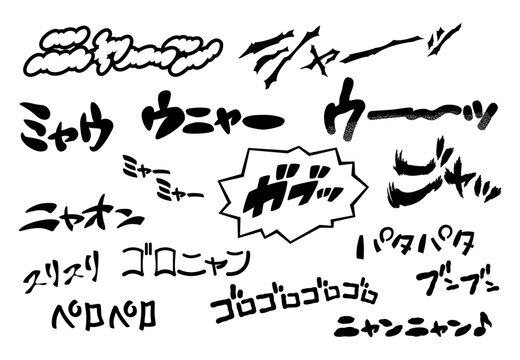 ニャーーン
シャーーッ
ミャウ
ウニャー
ウーーッ
ミャー
ミャー
ガブッ
ジャッ
ニャオン
パタパタ
スリスリ
ゴロニャン
ブンブン
ペロペロ
ゴロゴロゴロゴロ
ニャンニャン♪